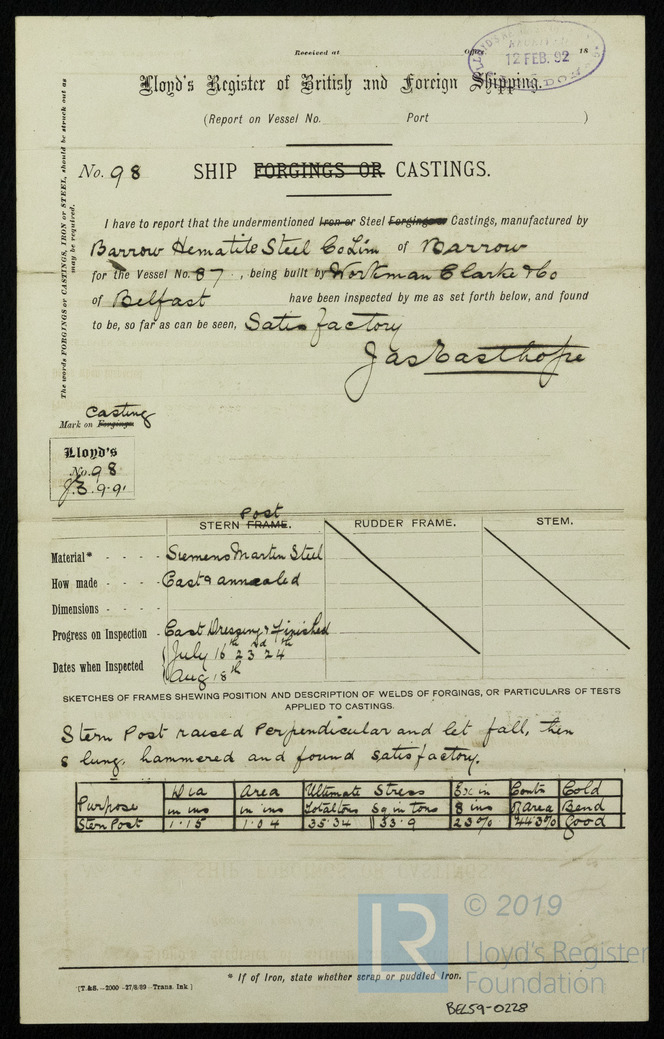 Received at
18
RECEIVED
12 FEB. 92
Lloyd's Register of British and Foreign Shipping.
(Report on Vessel No. Port )
No. 98 SHIP FORGINGS OR CASTINGS.
The words FORGINGS or CASTINGS, IRON or STEEL, should be struck out as
may be required.
I have to report that the undermentioned Iron or Steel Forgings or Castings, manufactured by
Barrow Hematite Steel Co Lim of Barrow
for the Vessel No. 87, being built by Workman Clarke & Co
of Belfast have been inspected by me as set forth below, and found
to be, so far as can be seen, Satisfactory
Jas Easthope
Casting
Mark on Forgings
Lloyd's
No. 98
J.E. 9.91
Post
STERN FRAME. RUDDER FRAME. STEM.
Material* - - - - Siemens Martin Steel
How made - - - - Cast & annealed
Dimensions - - - -
Progress on Inspection - Cast Dressing & Finished
July 16th 23rd 24th
Dates when Inspected
Aug 18th
SKETCHES OF FRAMES SHEWING POSITION AND DESCRIPTION OF WELDS OF FORGINGS, OR PARTICULARS OF TESTS
APPLIED TO CASTINGS.
Stern Post raised Perpendicular and let fall, then
slung, hammered and found satisfactory.
Purpose Dia in ins Area in ins Ultimate Stress Total tons Sq in tons Ex in 8 ins Contn R Area Cold Bend
Stern Post 1.15 1.04 35.34 33.9 23% 44.3% Good
© 2019
LR
Lloyd's Register
Foundation
* If of Iron, state whether scrap or puddled Iron.
[T. & S.—2000—27/8/89—Trans. Ink.]
BEL59-0228